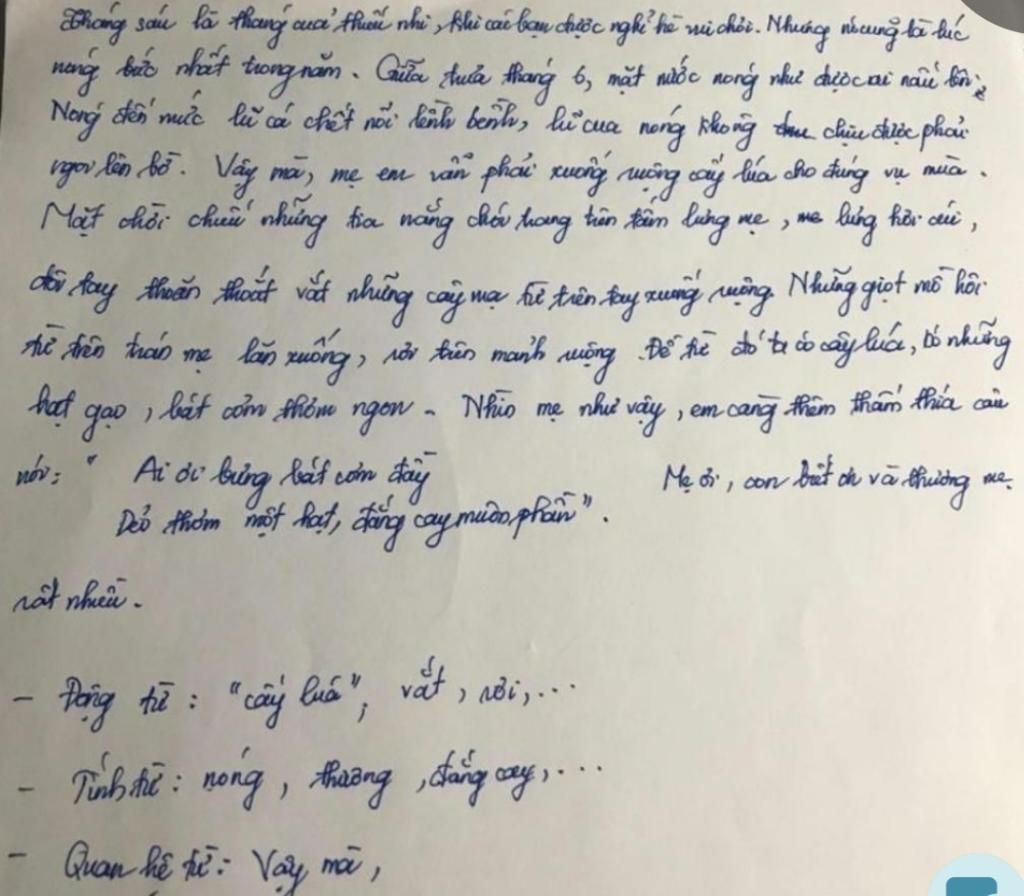 Tháng sáu là tháng của thiếu nhi, khi các bạn được nghỉ hè vui chơi. Nhưng nó cũng là lúc
nóng bức nhất trong năm. Giữa trưa tháng 6, mặt nước nóng như được ai nấu lên,
Nóng đến mức lũ cá chết nổi lềnh bềnh, lũ cua nóng không chịu được phải
ngoi lên bờ. Vậy mà, mẹ em vẫn phải xuống ruộng cấy lúa cho đúng vụ mùa.
Mặt chời chiếu những tia nắng chói trang trên tấm lưng mẹ, mẹ lưng hơi cúi,
đôi tay thoăn thoắt vắt những cây mạ từ trên tay xuống ruộng. Những giọt mồ hôi
từ trên trán mẹ lăn xuống, rơi trên mảnh ruộng. Để từ đó ta có cây lúa, có những
hạt gạo, bát cơm thơm ngon. Nhìn mẹ như vậy, em càng thêm thấm thía câu
nói: " Ai ơi bưng bát cơm đầy Mẹ ơi, con biết ơn và thương mẹ
Dẻo thơm một hạt, đắng cay muôn phần".
rất nhiều.
- Động từ: "cấy lúa", vắt, rơi,...
- Tính từ: nóng, thương, đắng cay,...
- Quan hệ từ: Vậy mà,